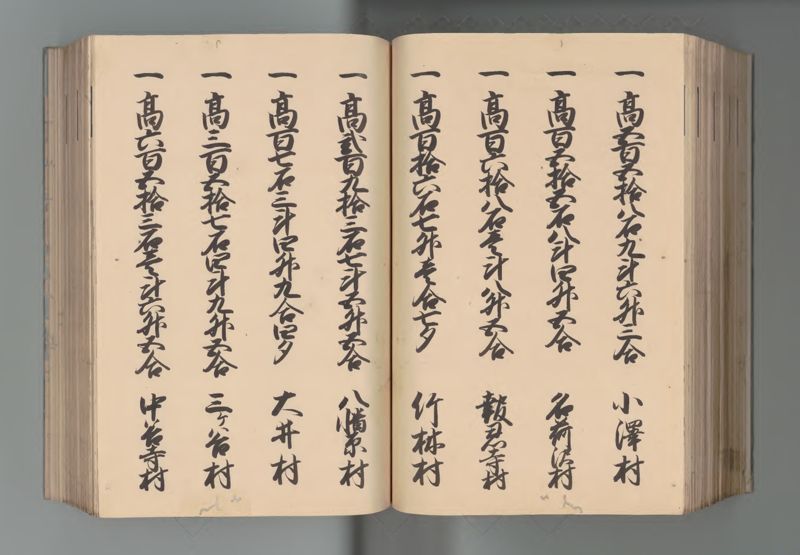 一 高五百五拾八石九斗六升三合 小澤村
一 高百五拾五石八斗四升五合 名荷沢村
一 高百六拾八石壱斗八升五合 報恩寺村
一 高百拾六石七升壱合七夕 竹林村
一 高貳百九拾三石七斗五升五合 八幡原村
一 高百七石三斗四升九合四夕 大井村
一 高三百五拾七石四斗九升五合 三ケ谷村
一 高六百五拾三石壱斗六升五合 中谷寺村